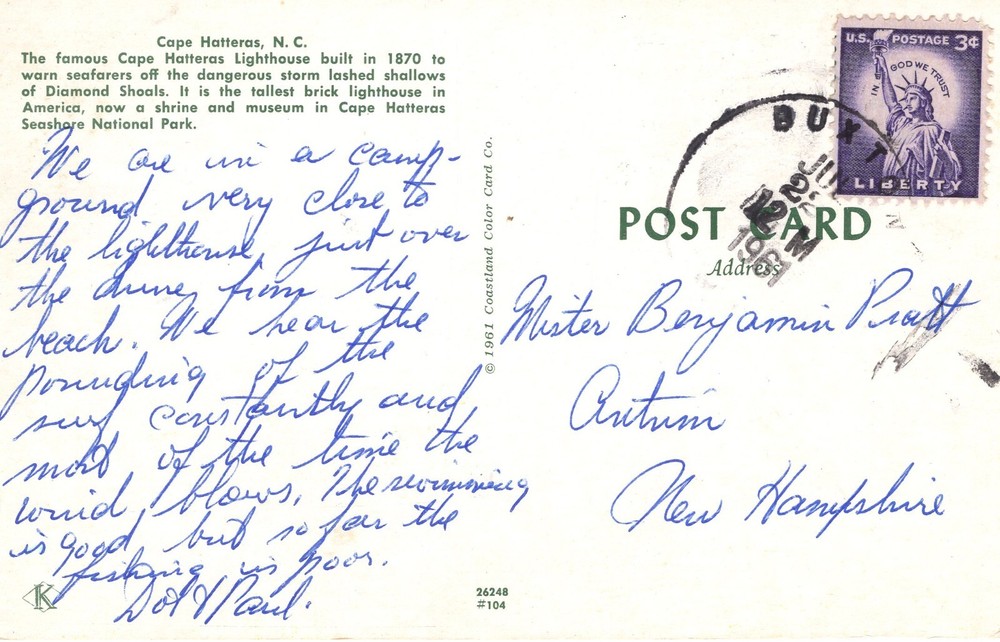 Cape Hatteras, N. C.
The famous Cape Hatteras Lighthouse built in 1870 to
warn seafarers off the dangerous storm lashed shallows
of Diamond Shoals. It is the tallest brick lighthouse in
America, now a shrine and museum in Cape Hatteras
Seashore National Park.
We are in a camp-
ground very close to
the lighthouse just over
the dune from the
beach. We hear the
pounding of the
surf constantly and
most of the time the
wind blows. The swimming
is good but so far the
fishing is poor.
Dot & Paul.
K
© 1961 Coastland Color Card Co.
26248
#104
U.S. POSTAGE 3¢
IN GOD WE TRUST
LIBERTY
BUXTON
N
JUL
22
M
19
POST CARD
Address
Mister Benjamin Pratt
Antrim
New Hampshire